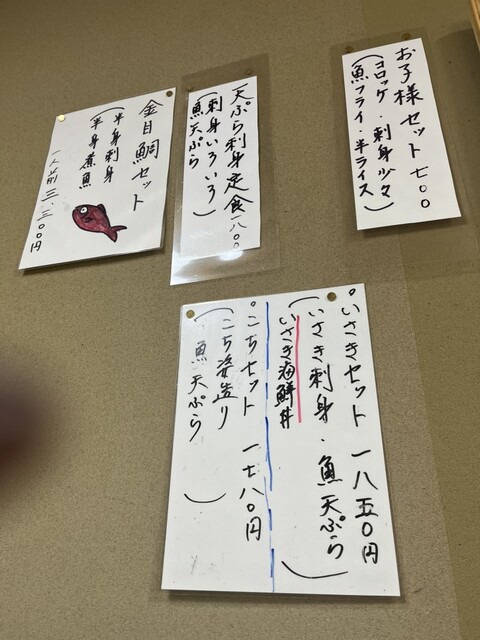 お子様セット七〇〇
(コロッケ・刺身少々
魚フライ・半ライス)
天ぷら刺身定食一八〇〇
(刺身いろいろ
魚天ぷら)
金目鯛セット
(半身刺身
半身煮魚
一人前三、三〇〇円
。いさきセット 一八五〇円
(いさき刺身・魚天ぷら)
いさき海鮮丼
。こちセット 一七八〇円
(こち姿造り
魚天ぷら)